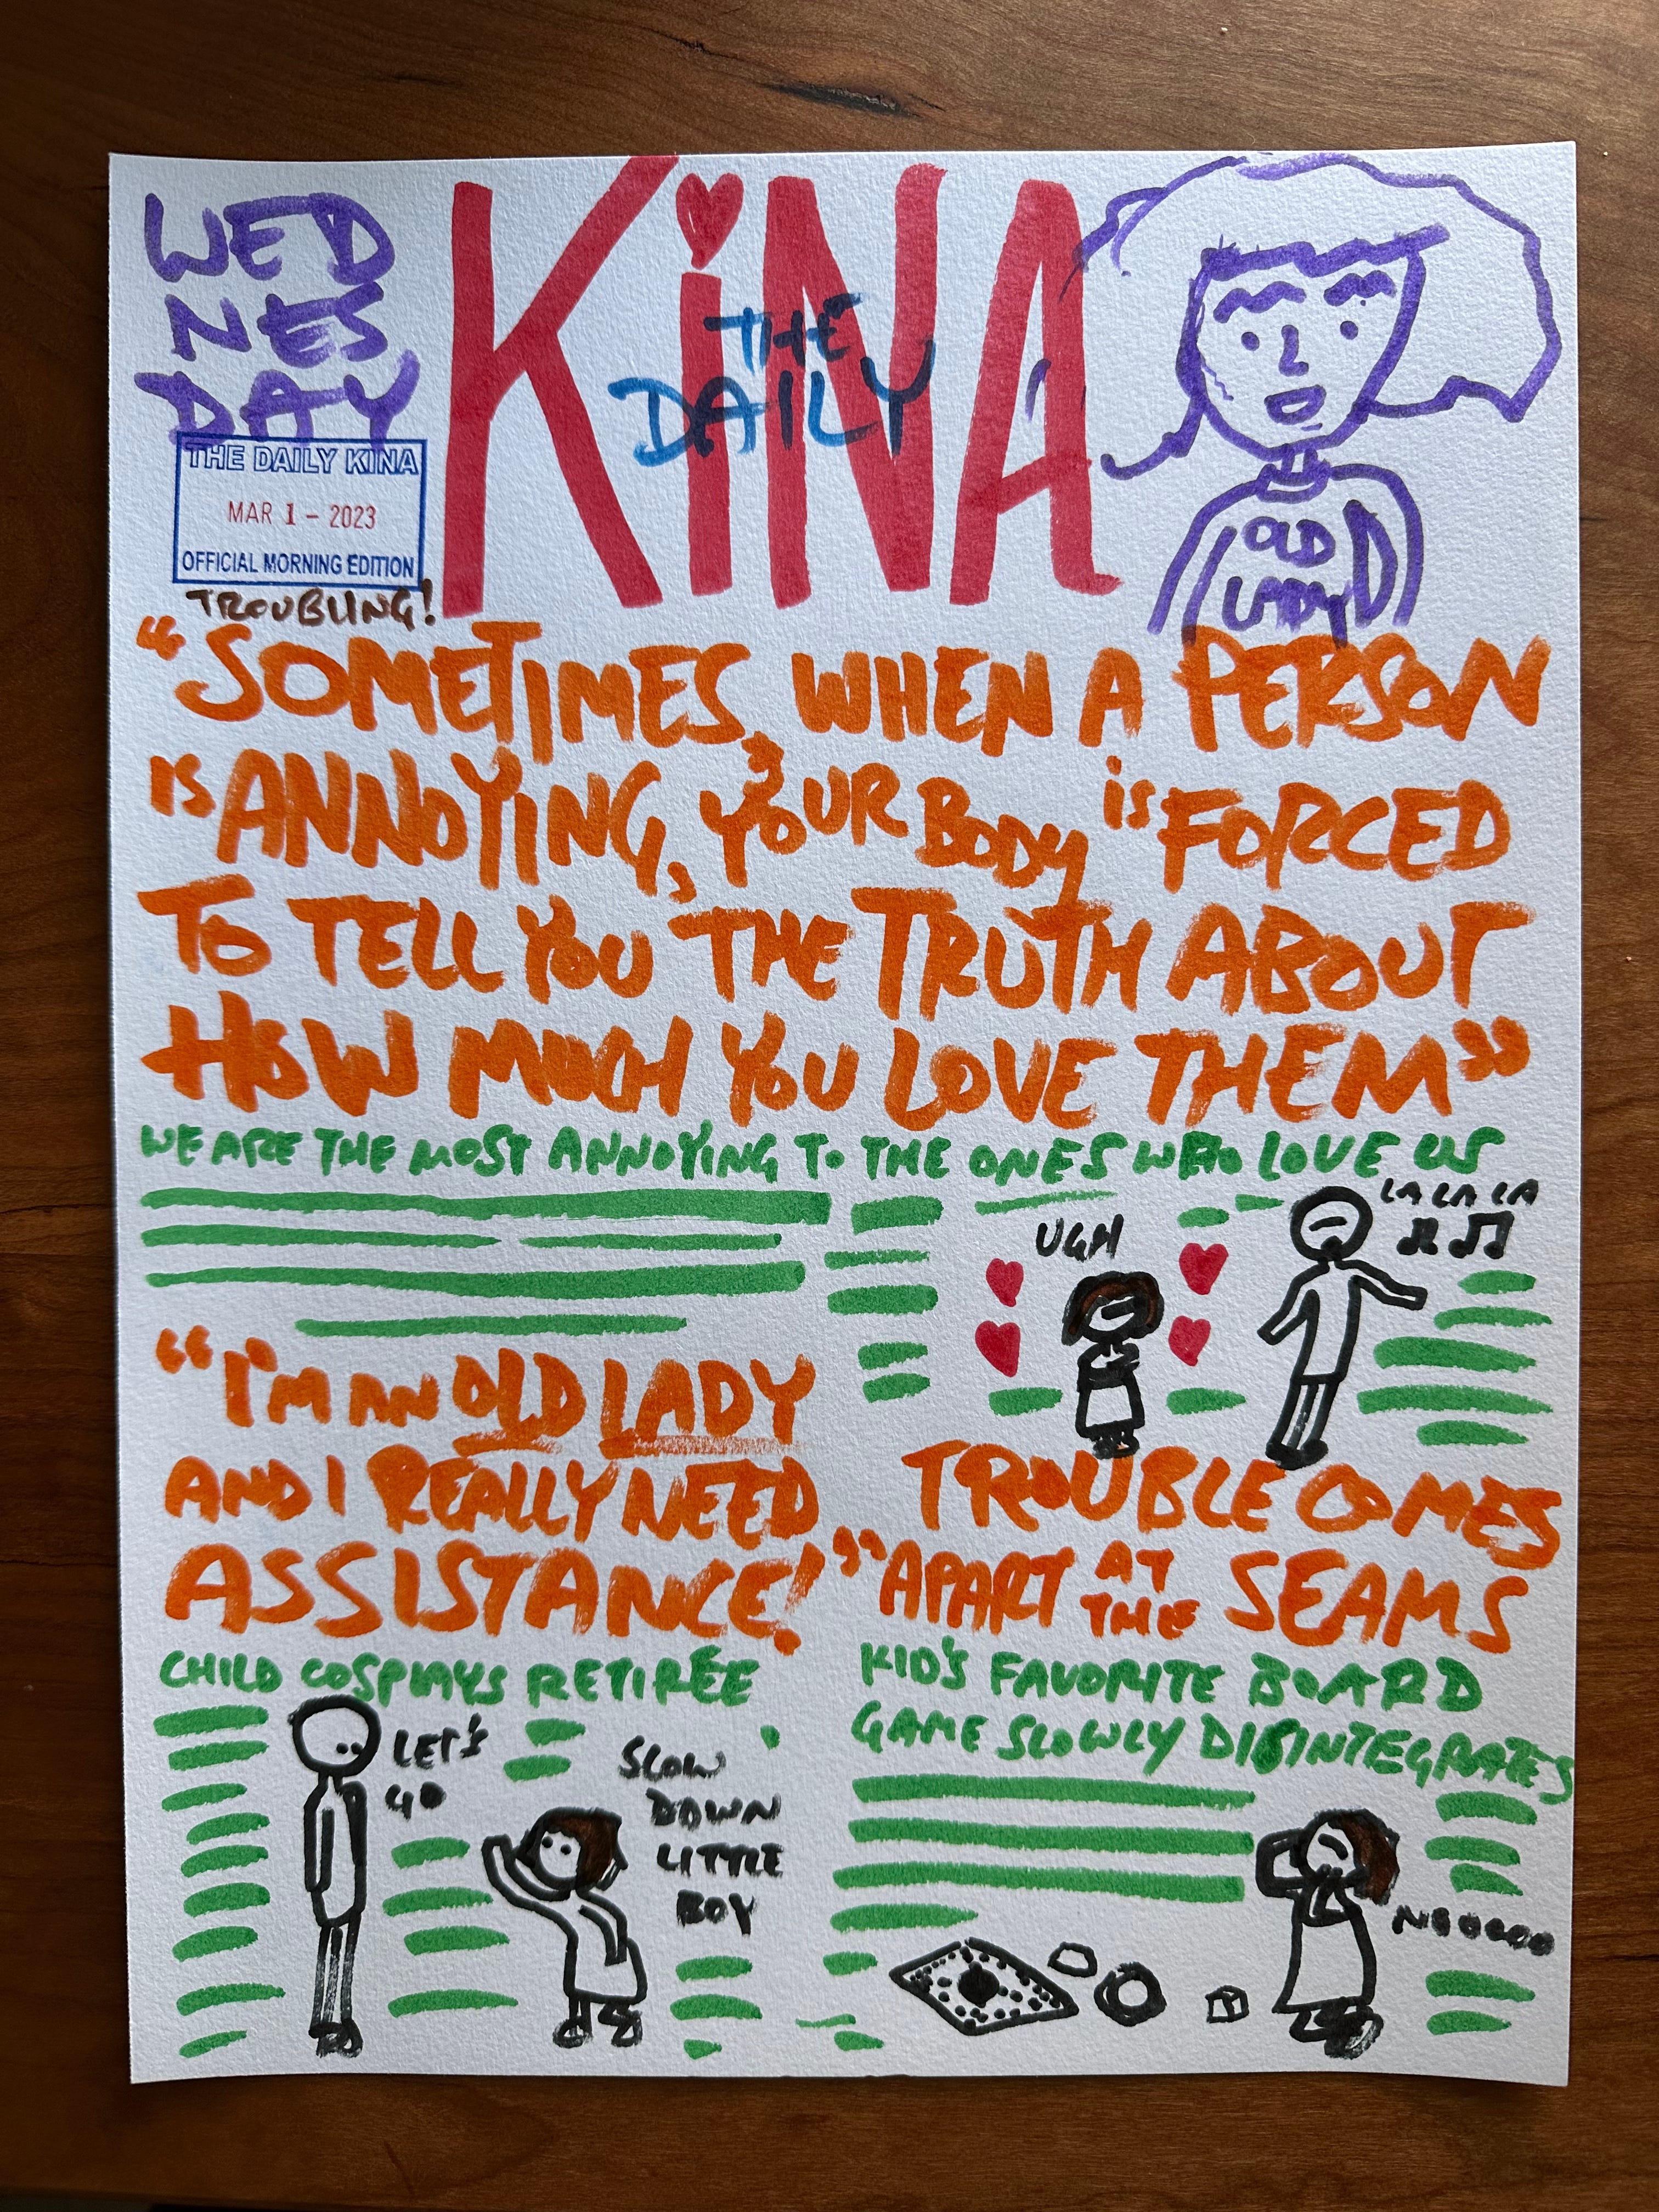 WED
NES
DAY
KiNA
THE
DAILY
THE DAILY KINA
MAR 1 - 2023
OFFICIAL MORNING EDITION
TROUBLING!
OLD
LADY
"SOMETIMES, WHEN A PERSON
IS ANNOYING, YOUR BODY is FORCED
TO TELL YOU THE TRUTH ABOUT
HOW MUCH YOU LOVE THEM"
WE ARE THE MOST ANNOYING TO THE ONES WHO LOVE US
UGH
LA LA LA
"I'M AN OLD LADY
AND I REALLY NEED
ASSISTANCE!"
CHILD COSPLAYS RETIRÉE
LET'S
GO
SLOW
DOWN
LITTLE
BOY
TROUBLE COMES
APART AT THE SEAMS
KID'S FAVORITE BOARD
GAME SLOWLY DISINTEGRATES
NOOOOO